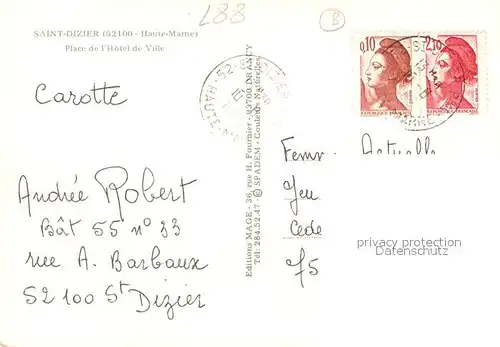 L88
B
SAINT-DIZIER (52100 - Haute-Marne)
Place de l'Hôtel de Ville
Carotte
Andrée Robert
Bât 55 n° 33
rue A. Barbaux
52100 St Dizier
Editions MAGE - 36, rue H. Fournier - 93700 DRANCY
Tél: 284.52.47 - © SPADEM - Couleurs Naturelles
0,10
2,10
REPUBLIQUE FRANÇAISE
Jeu
Cede
75
privacy protection
Datenschutz